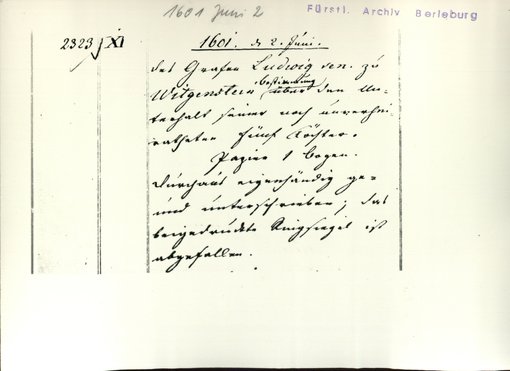 1601 Juni 2
Fürstl. Archiv Berleburg
2323 XI
1601. d. 2. Juni.
des Grafen Ludwig sen. zu
Bestimmung
Witgenstein über den Un-
terhalt seiner noch unverhei-
ratheten fünf Töchter.
Papier 1 Bogen.
Durchaus eigenhändig ge-
und unterschrieben; das
beigedruckte Ringsiegel ist
abgefallen.